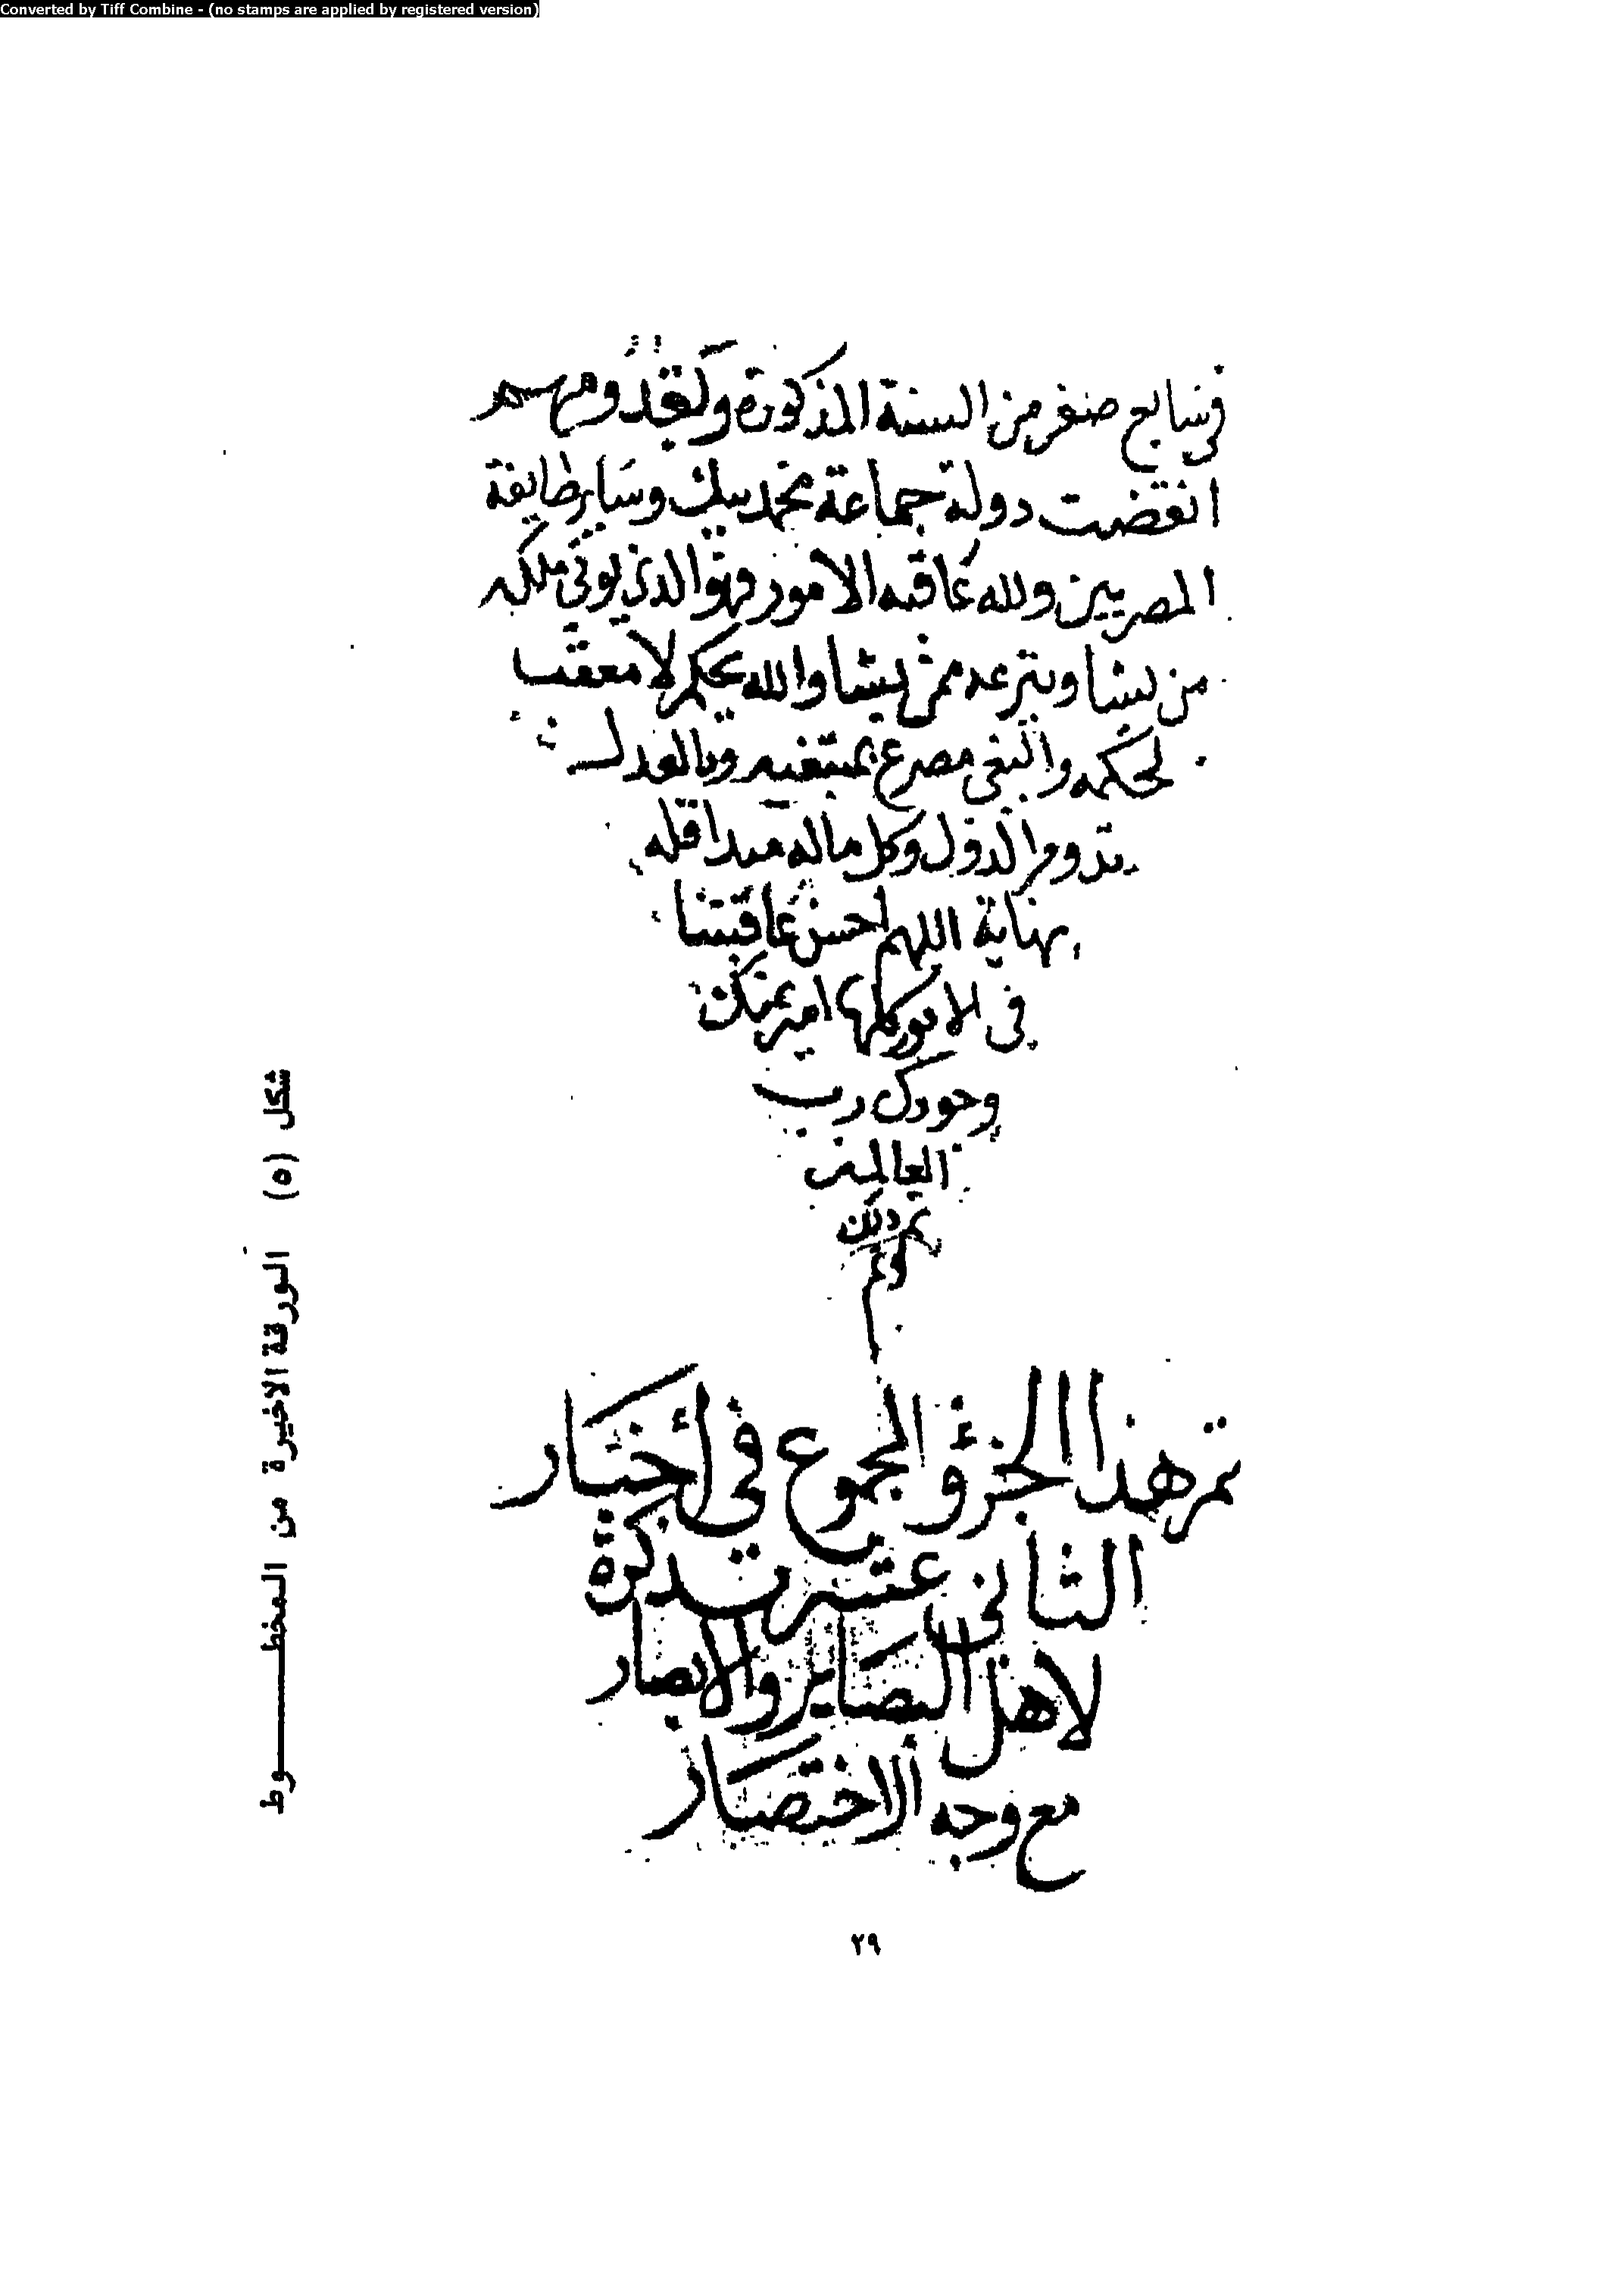 Converted by Tiff Combine - (no stamps are applied by registered version)
في سابع صفر من السنة المذكورة وبقدومهم
انقضت دولة جماعة محمد بيك وساير طايفة
المصريين ولله عاقبه الامور وهو الذي يوتي ملكه
من يشا وينزعه ممن يشا والله يحكم لا معقب
لحكمه والبغي مصرع بمبتغيه وبالعدل
تدوم الدول وكل ماله مبدا فله
نهاية اللهم احسن عاقبتنا
في الامور كلها امين بمنك
وجودك رب
العالمين
تم ذلك
تم هذا الجزؤ المجموع في أخبار
الثاني عشر تذكرة
لاهل البصاير والابصار
مع وجه الاختصار
شكل (٥) الورقة الاخيرة من المخطـــــوط
٢٩